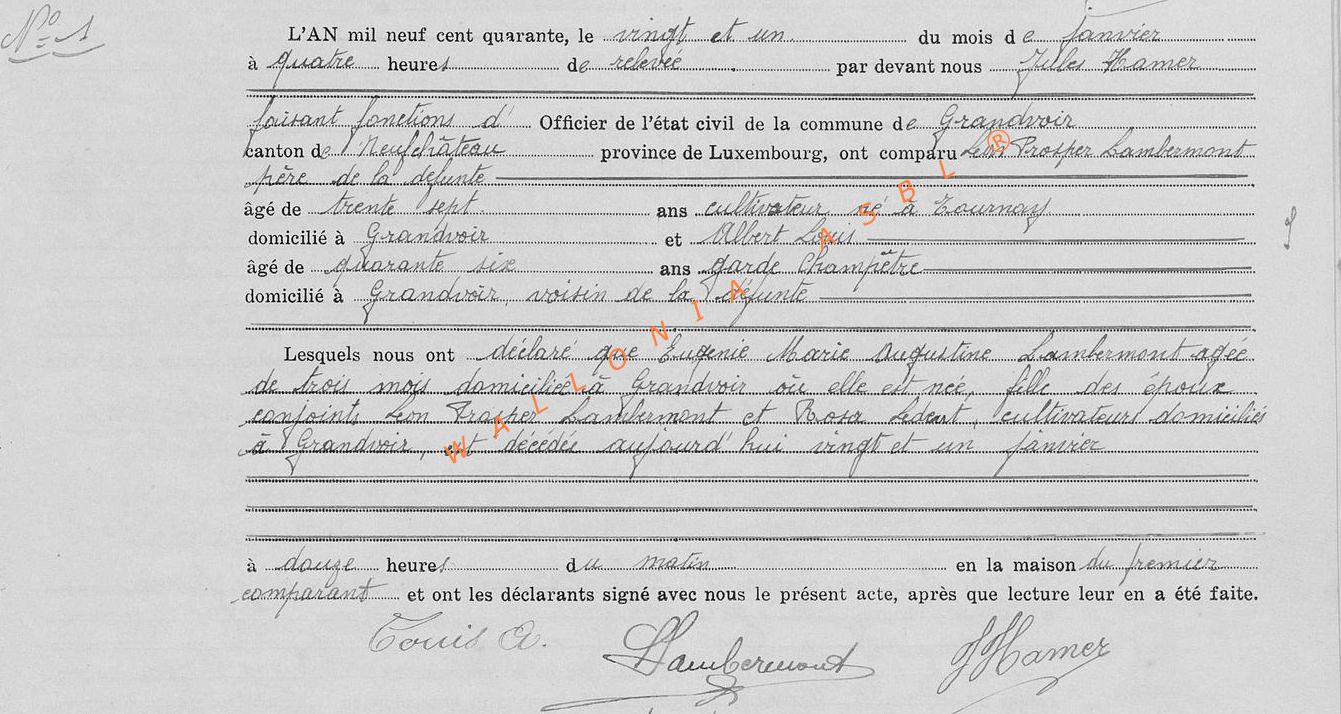 N° 1
L'AN mil neuf cent quarante, le vingt et un du mois de janvier
à quatre heures de relevée par devant nous Jules Hamer
faisant fonctions d' Officier de l'état civil de la commune de Grandvoir
canton de Neufchâteau province de Luxembourg, ont comparu Léon Prosper Lambermont
père de la défunte
âgé de trente sept ans cultivateur né à Tournay
domicilié à Grandvoir et Albert Louis
âgé de quarante six ans garde Champêtre
domicilié à Grandvoir, voisin de la défunte
Lesquels nous ont déclaré que Eugénie Marie Augustine Lambermont agée
de trois mois domiciliée à Grandvoir où elle est née, fille des époux
conjoints Léon Prosper Lambermont et Rosa Ledent, cultivateurs domiciliés
à Grandvoir, est décédée aujourd'hui vingt et un janvier
à douze heures du matin en la maison du premier
comparant et ont les déclarants signé avec nous le présent acte, après que lecture leur en a été faite.
Louis A. Lambermont JHamer
WALLONIA ASBL ®